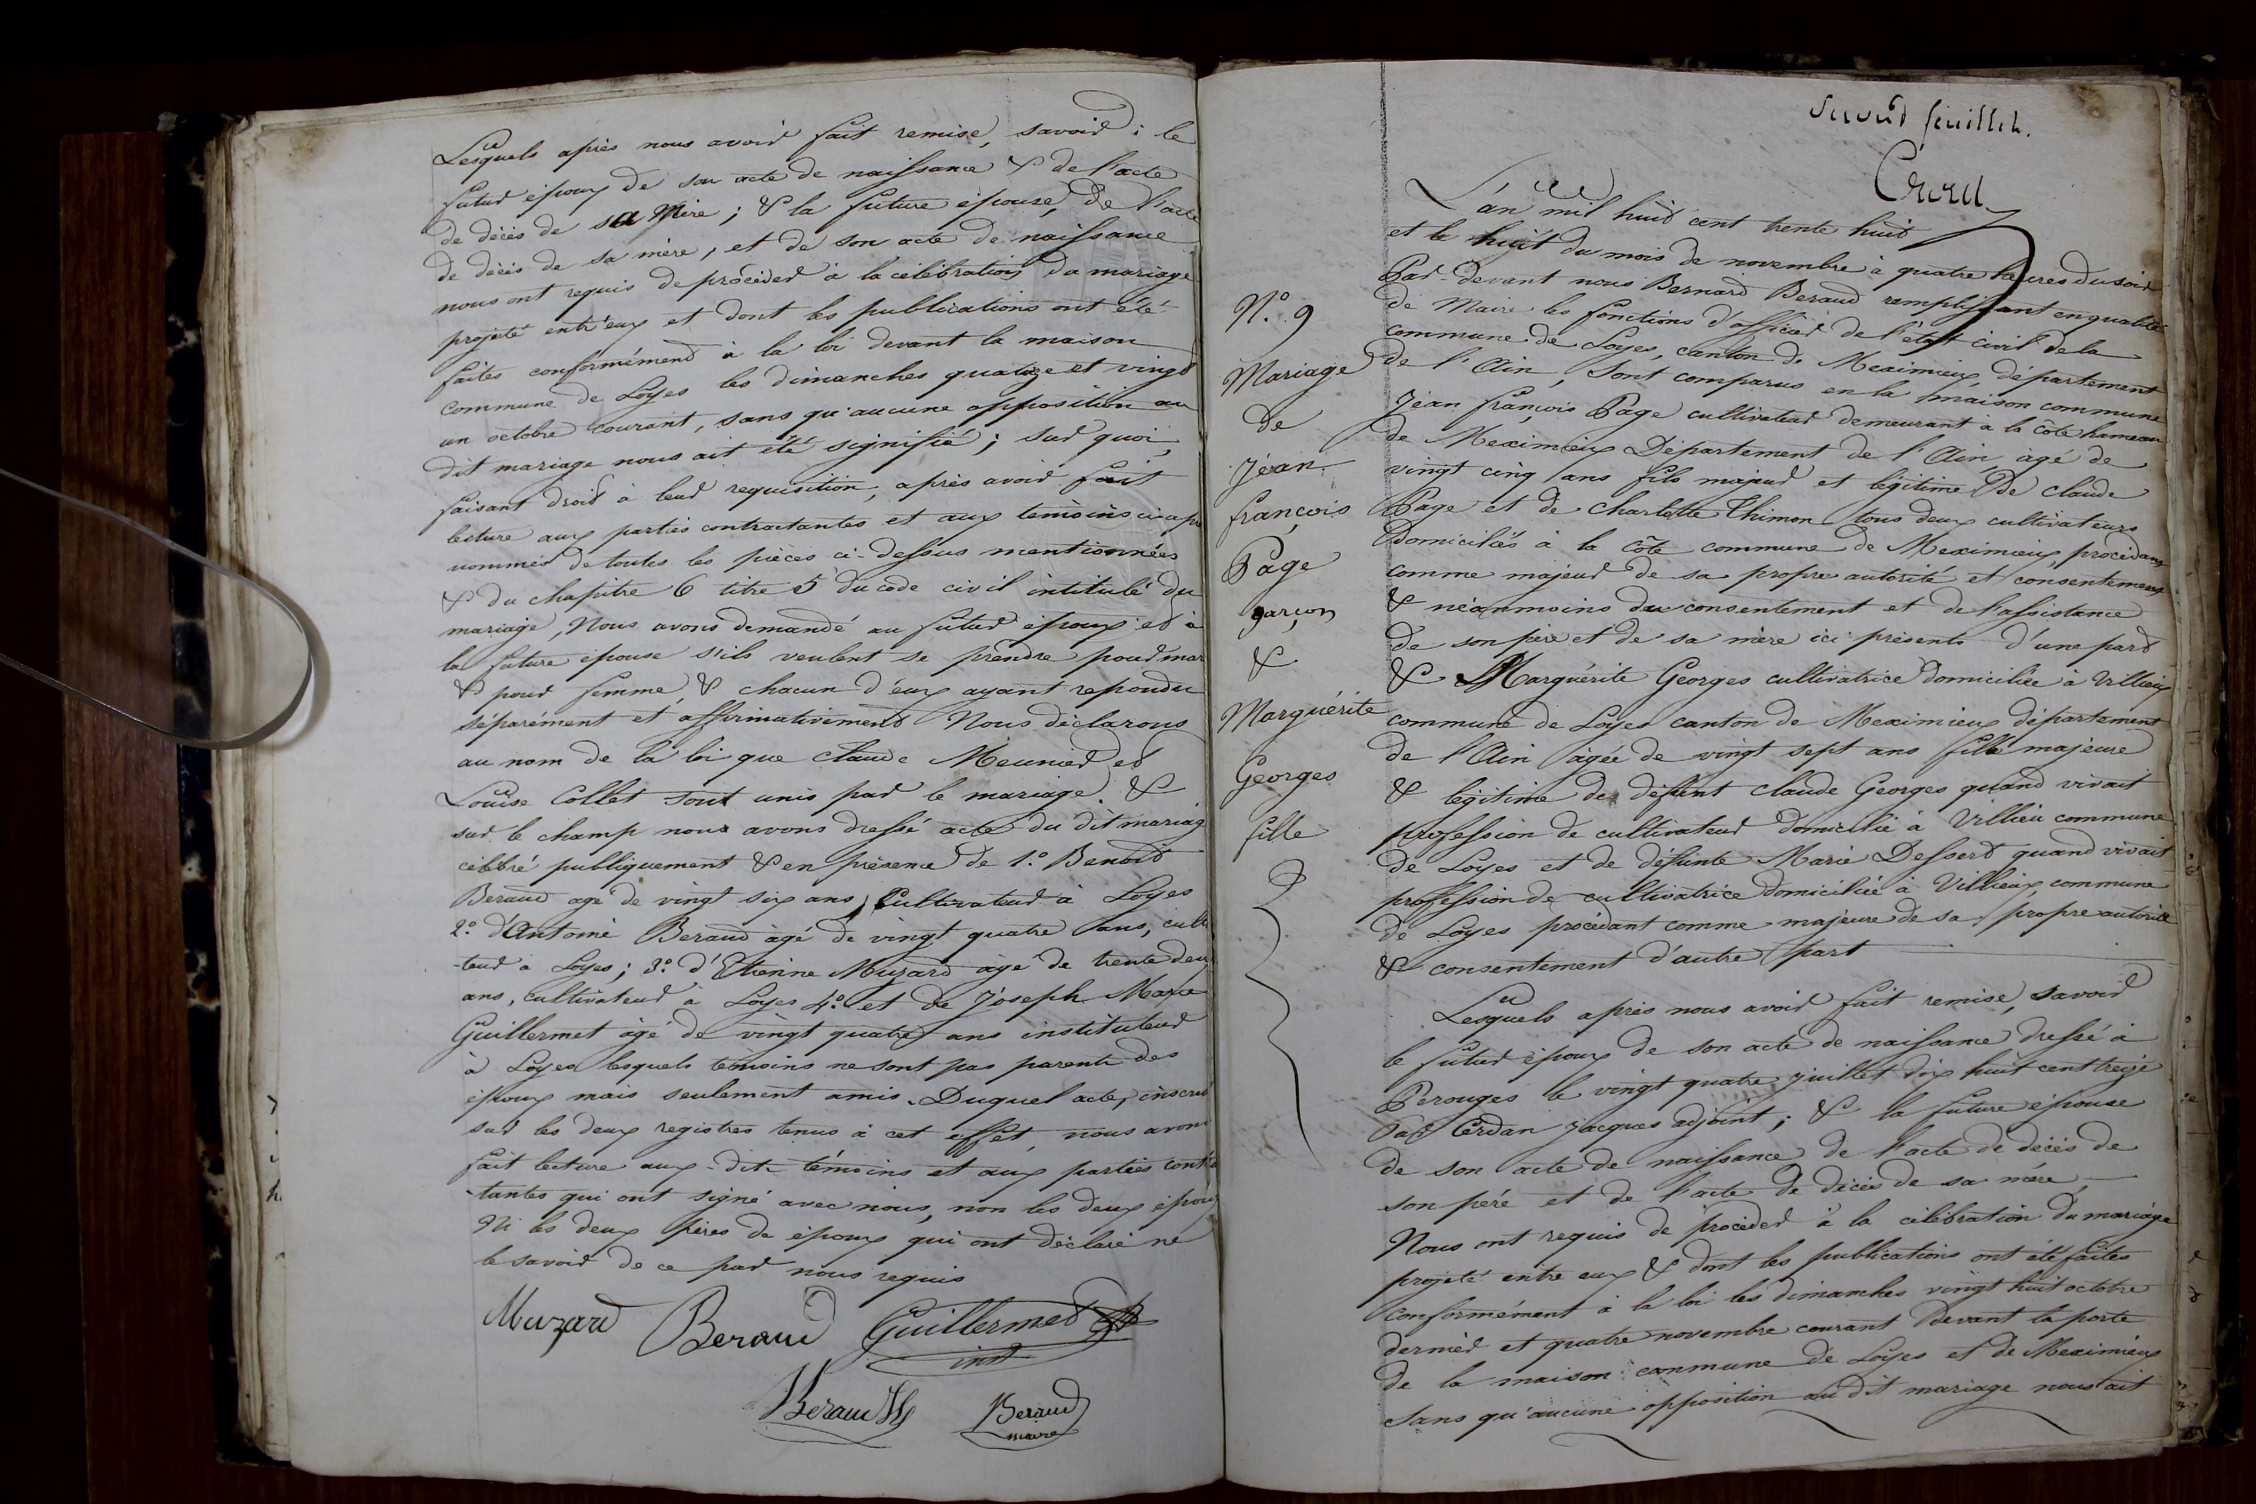 Lesquels après nous avoir fait remise, savoir : le
futur époux de son acte de naissance & de l'acte
de décès de sa Mère ; & la future épouse, de l'acte
de décès de sa mère, et de son acte de naissance
nous ont requis de procéder à la célébration du mariage
projeté entr'eux et dont les publications ont été
faites conformément à la loi devant la maison
commune de Loyes les dimanches quatorze et vingt
un octobre courant, sans qu'aucune opposition au
dit mariage nous ait été signifié ; sur quoi,
faisant droit à leur requisition, après avoir fait
lecture aux parties contractantes et aux temoins ci-apr
nommés de toutes les pièces ci-dessus mentionnées
& du chapitre 6 titre 5 du code civil intitulé du
mariage, Nous avons demandé au futur époux et à
la future épouse s'ils veulent se prendre pour mar
& pour femme & chacun d'eux ayant repondu
séparément et affirmativement Nous déclarons
au nom de la loi que Claude Meunier et
Louise Collet sont unis par le mariage. &
sur le champ nous avons dressé acte du dit mariag
célébré publiquement & en présence de 1.º Benoit
Beraud agé de vingt six ans, Cultivateur à Loyes
2.º d'Antoine Beraud âgé de vingt quatre ans, culti
-teur à Loyes ; 3.º d'Etienne Muzard âgé de trente deux
ans, cultivateur à Loyes 4.º et de Joseph Marie
Guillermet âgé de vingt quatre ans instituteur
à Loyes lesquels témoins ne sont pas parents des
époux mais seulement amis. Duquel acte, inscrit
sur les deux registres tenus à cet effet, nous avons
fait lecture aux-dits témoins et aux parties contra
-tantes qui ont signé avec nous, non les deux époux
Ni les deux pères de époux qui ont déclaré ne
le savoir de ce par nous requis
Muzard Beraud Guillermet
inst
Beraud Beraud
maire
Second feuillet.
L'an mil huit cent trente huit
et le huit du mois de novembre à quatre heures du soir
Par-devant nous Bernard Beraud remplissant en qualité
de Maire les fonctions d'officier de l'état civil de la
commune de Loyes, canton de Meximieux département
de l'Ain, Sont comparus en la maison commune
Jean françois Page cultivateur demeurant à la Côte hameau
de Meximieux Département de l'Ain, agé de
vingt cinq ans fils majeur et légitime de Claude
Page et de Charlotte Thimon tous deux cultivateurs
domiciliés à la côte commune de Meximieux, procédant
comme majeur de sa propre autorité et consentement
& néanmoins du consentement et de l'assistance
de son père et de sa mère ici présents d'une part
& Marguérite Georges cultivatrice domiciliée à Villieux
commune de Loyes canton de Meximieux département
de l'Ain âgée de vingt sept ans fille majeure
& légitime de défunt Claude Georges quand vivait
profession de cultivateur domicilié à Villieu commune
de Loyes et de défunte Marie Dessert quand vivait
profession de cultivatrice domiciliée à Villieux commune
de Loyes procédant comme majeure de sa propre autorité
& consentement d'autre part
Lesquels après nous avoir fait remise, savoir
le futur époux de son acte de naissance dressé à
Pérouges le vingt quatre juillet dix huit cent treize
Par Cerdan Jacques adjoint ; & la future épouse
de son acte de naissance de l'acte de décès de
son père et de l'acte de décès de sa mère
Nous ont requis de procéder à la célébration du mariage
projeté entre eux & dont les publications ont été faites
conformément à la loi les dimanches vingt huit octobre
dernier et quatre novembre courant devant la porte
de la maison commune de Loyes et de Meximieux
sans qu'aucune opposition au dit mariage nous ait
N.º 9
Mariage
de
Jean
françois
Page
garçon
&
Marguérite
Georges
fille